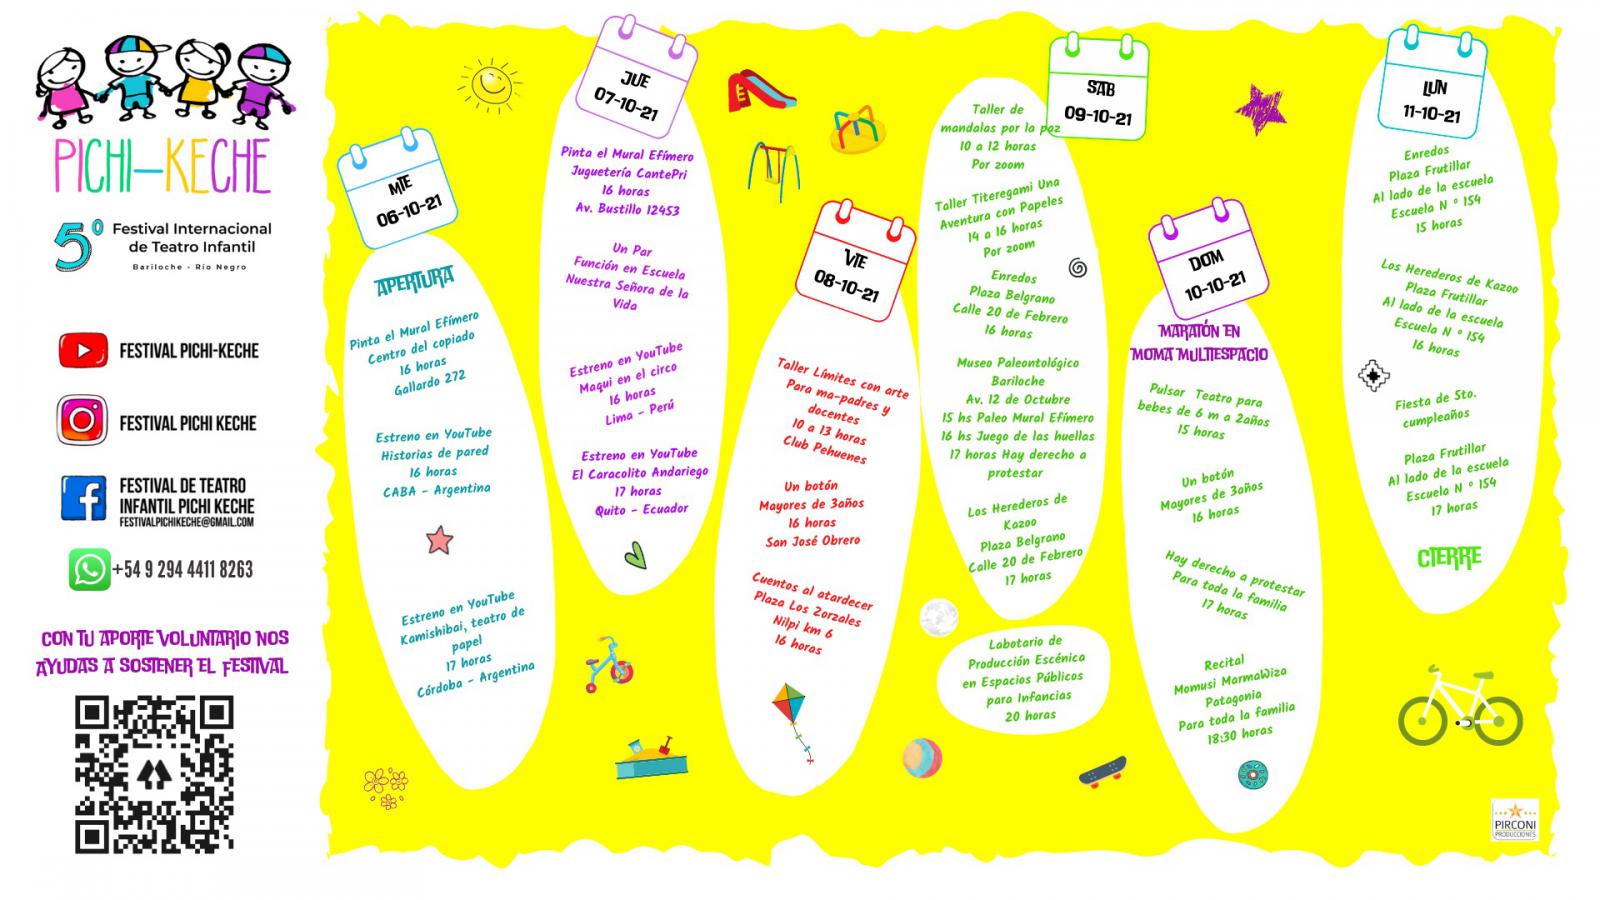 PICHI-KECHE
5º Festival Internacional
de Teatro Infantil
Bariloche - Río Negro
FESTIVAL PICHI-KECHE
FESTIVAL PICHI KECHE
FESTIVAL DE TEATRO
INFANTIL PICHI KECHE
FESTIVALPICHIKECHE@GMAIL.COM
+54 9 294 4411 8263
CON TU APORTE VOLUNTARIO NOS
AYUDAS A SOSTENER EL FESTIVAL
MIE
06-10-21
APERTURA
Pinta el Mural Efímero
Centro del copiado
16 horas
Gallardo 272
Estreno en YouTube
Historias de pared
16 horas
CABA - Argentina
Estreno en YouTube
Kamishibai, teatro de
papel
17 horas
Córdoba - Argentina
JUE
07-10-21
Pinta el Mural Efímero
Juguetería CantePri
16 horas
Av. Bustillo 12453
Un Par
Función en Escuela
Nuestra Señora de la
Vida
Estreno en YouTube
Maqui en el circo
16 horas
Lima - Perú
Estreno en YouTube
El Caracolito Andariego
17 horas
Quito - Ecuador
VIE
08-10-21
Taller Límites con arte
Para ma-padres y
docentes
10 a 13 horas
Club Pehuenes
Un botón
Mayores de 3años
16 horas
San José Obrero
Cuentos al atardecer
Plaza Los Zorzales
Nilpi km 6
16 horas
SAB
09-10-21
Taller de
mandalas por la paz
10 a 12 horas
Por zoom
Taller Titeregami Una
Aventura con Papeles
14 a 16 horas
Por zoom
Enredos
Plaza Belgrano
Calle 20 de Febrero
16 horas
Museo Paleontológico
Bariloche
Av. 12 de Octubre
15 hs Paleo Mural Efímero
16 hs Juego de las huellas
17 horas Hay derecho a
protestar
Los Herederos de
Kazoo
Plaza Belgrano
Calle 20 de Febrero
17 horas
Labotario de
Producción Escénica
en Espacios Públicos
para Infancias
20 horas
DOM
10-10-21
MARATÓN EN
MOMA MULTIESPACIO
Pulsar Teatro para
bebes de 6 m a 2años
15 horas
Un botón
Mayores de 3años
16 horas
Hay derecho a protestar
Para toda la familia
17 horas
Recital
Momusi MarmaWiza
Patagonia
Para toda la familia
18:30 horas
LUN
11-10-21
Enredos
Plaza Frutillar
Al lado de la escuela
Escuela N º 154
15 horas
Los Herederos de Kazoo
Plaza Frutillar
Al lado de la escuela
Escuela N º 154
16 horas
Fiesta de 5to.
cumpleaños
Plaza Frutillar
Al lado de la escuela
Escuela N º 154
17 horas
CIERRE
PIRCONI
PRODUCCIONES